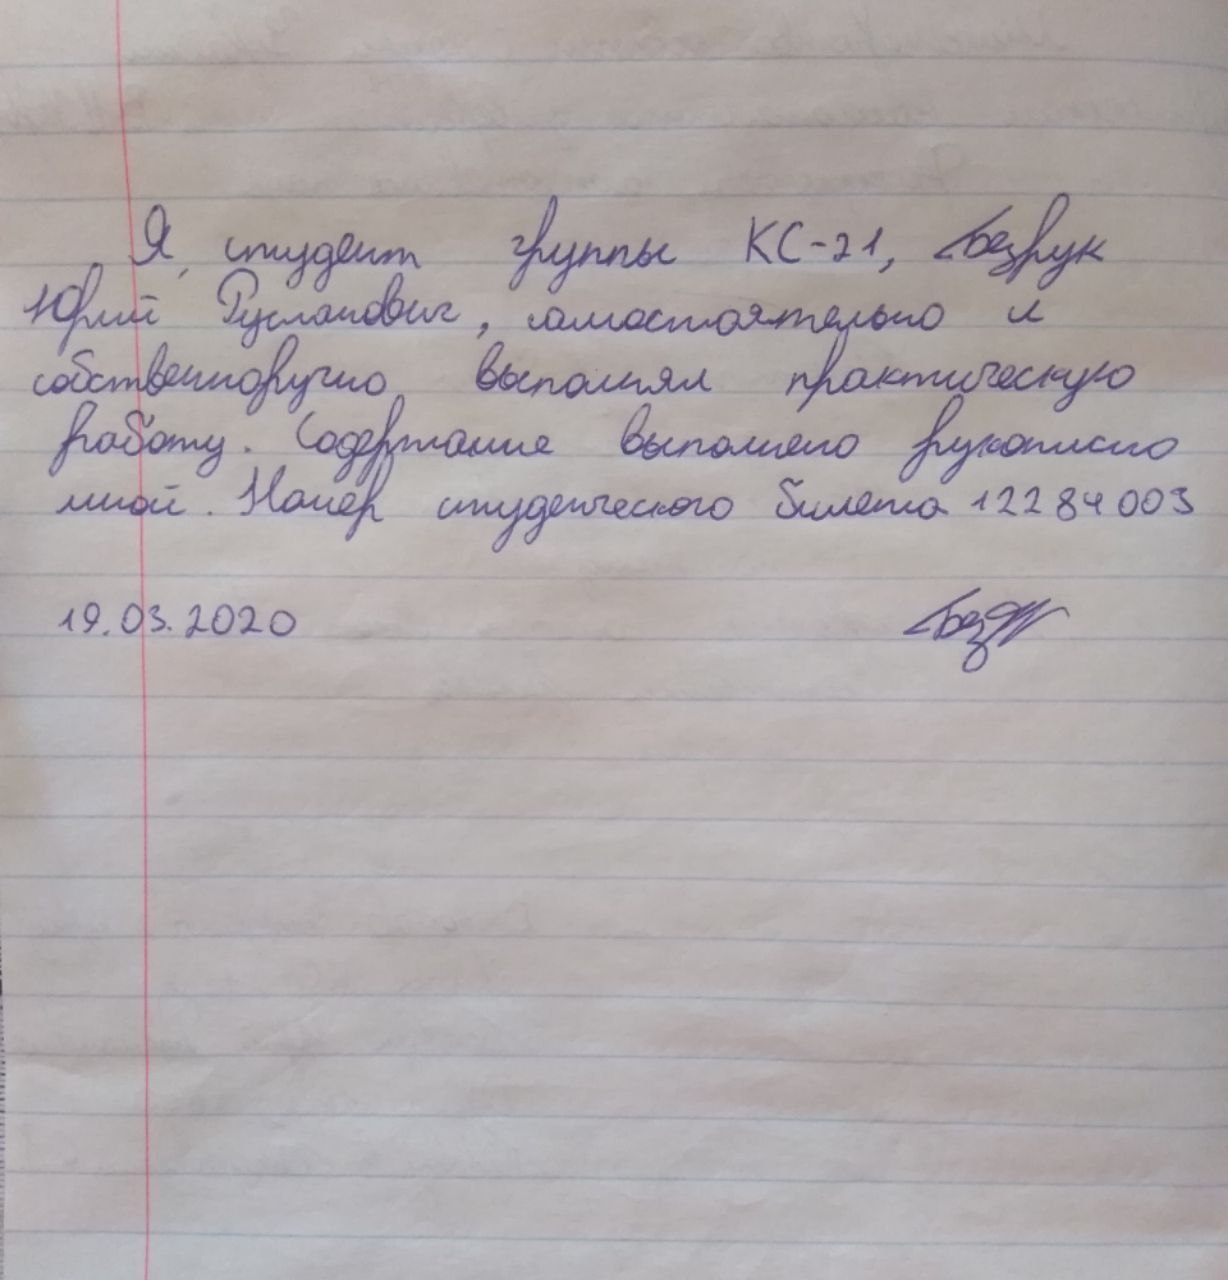 Я, студент группы КС-21, Безрук
Юрий Русланович, самостоятельно и
собственноручно выполнял практическую
работу. Содержание выполнено рукописно
мной. Номер студенческого билета 12284003
19.03.2020